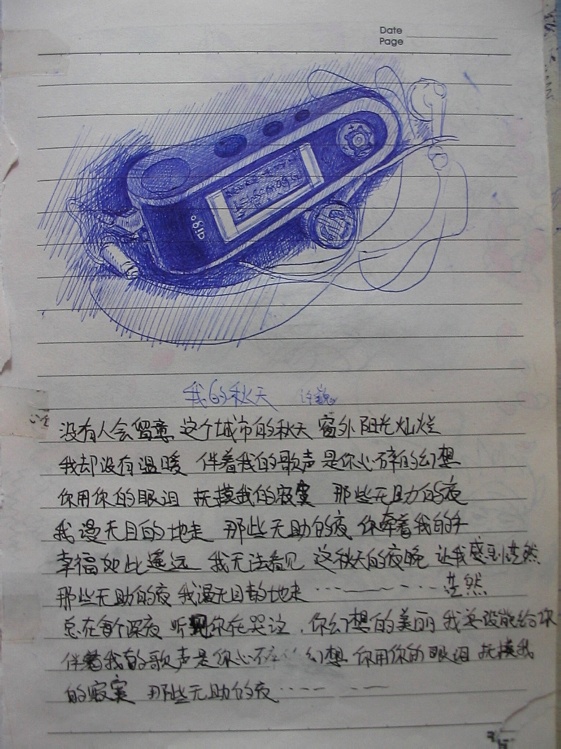 Date
Page
aigo
我的秋天 许巍
没有人会留意 这个城市的秋天 窗外阳光灿烂
我却没有温暖 伴着我的歌声是你心碎的幻想
你用你的眼泪 抚摸我的寂寞 那些无助的夜
我漫无目的地走 那些无助的夜 你牵着我的手
幸福如此遥远 我无法看见 这秋天的夜晚 让我感到茫然
那些无助的夜 我漫无目的地走………… 茫然
总在每个深夜 听到你在哭泣 你幻想的美丽 我总没能给你
伴着我的歌声是你心碎的幻想 你用你的眼泪 抚摸我
的寂寞 那些无助的夜…………